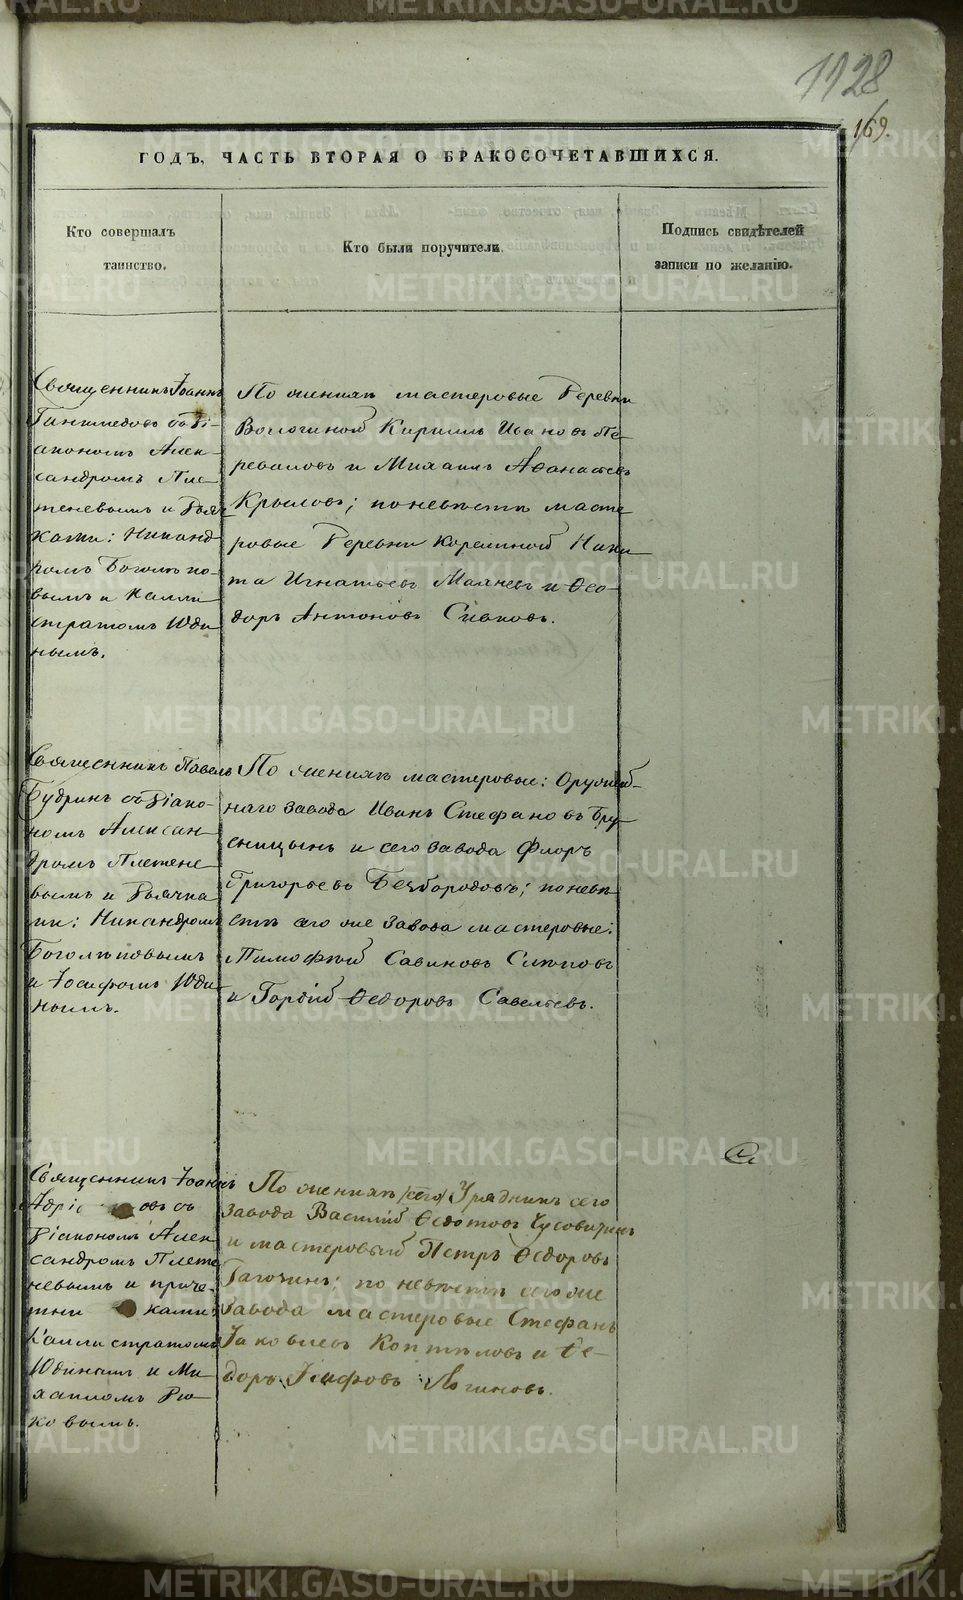 1128
169.
ГОДЪ, ЧАСТЬ ВТОРАЯ О БРАКОСОЧЕТАВШИХСЯ.
Кто совершалъ
таинство.
Кто были поручители.
Подпись свидѣтелей
записи по желанію.
Священникъ Іоаннъ
съ Ді-
акономъ Алек-
сандромъ Пле-
теневымъ и Дьяч-
ками: Никанд-
ромъ Боголѣпо-
вымъ и Калли-
стратомъ Юди-
нымъ.
По женихѣ мастеровые Деревни
Кириллъ Ивановъ Пе-
реваловъ и Михаилъ Аѳанасьевъ
Крыловъ; по невѣстѣ масте-
ровые Деревни Корелиной Ники-
та Игнатьевъ и Ѳео-
доръ Антоновъ Сивковъ.
Священникъ Павелъ
Будринъ съ Діако-
номъ Алексан-
дромъ Плетене-
вымъ и Дьячка-
ми: Никандромъ
Боголѣповымъ
и Іосифомъ Юди-
нымъ.
По женихѣ мастеровые: Оружей-
наго завода Иванъ Стефановъ Бру-
сницынъ и сего завода Флоръ
Григорьевъ Безбородовъ; по невѣ-
стѣ сего же завода мастеровые:
Тимофей Савиновъ Слѣповъ
и Гордѣй Ѳедоровъ Савельевъ.
Священникъ Іоаннъ
съ
Діакономъ Алек-
сандромъ Плете-
невымъ и приче-
тни ками:
Каллистратомъ
Юдинымъ и Ми-
хаиломъ
По женихѣ Урядникъ сего
завода Василій Ѳедотовъ Чусовитинъ
и мастеровый Петръ Ѳедоровъ
по невѣстѣ сего же
завода мастеровые Стефанъ
Яковлевъ Коптяловъ и Ѳе-
доръ Логиновъ.
METRIKI.GASO-URAL.RU